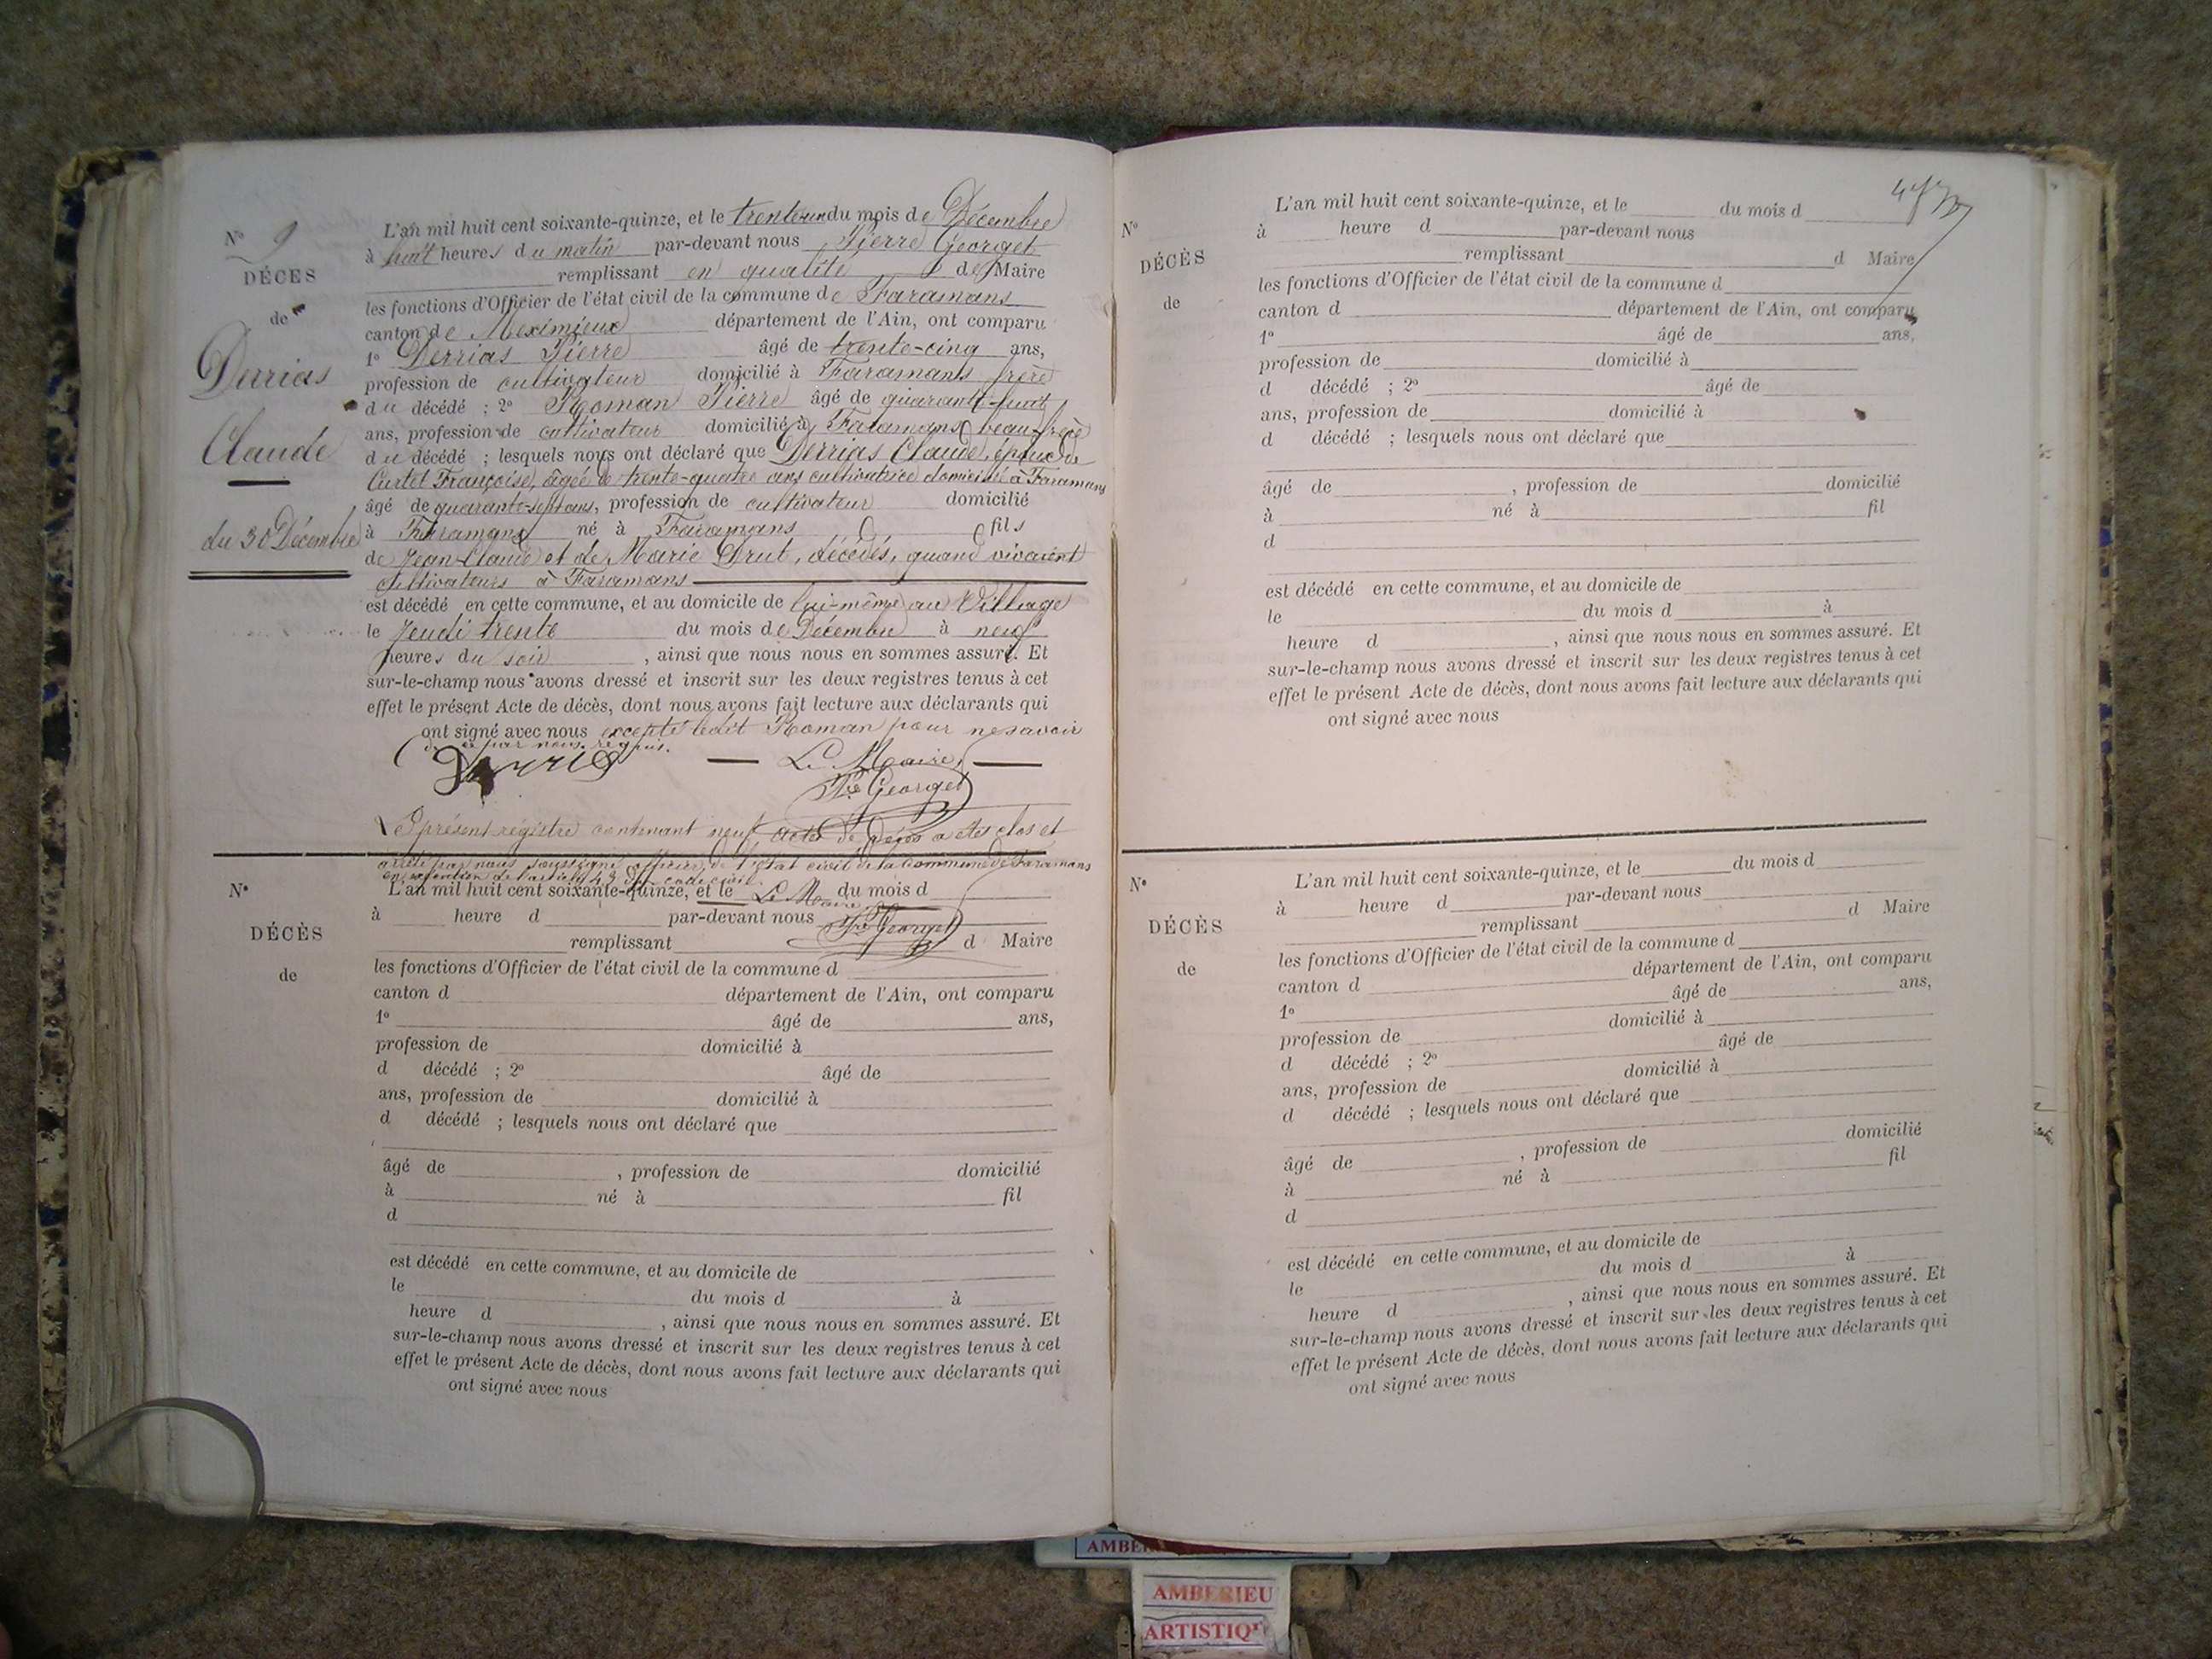 N° 9
DÉCES
de
Derrias
Claude
du 30 Décembre
L'an mil huit cent soixante-quinze, et le trente-un du mois de Décembre
à huit heures du matin par-devant nous Pierre Georget
remplissant en qualité de Maire
les fonctions d'Officier de l'état civil de la commune de Faramans
canton de Meximieux département de l'Ain, ont comparu
1° Derrias Pierre âgé de trente-cinq ans,
profession de cultivateur domicilié à Faramans frère
du décédé ; 2° Roman Pierre âgé de quarante-huit
ans, profession de cultivateur domicilié à Faramans beau-frère
du décédé ; lesquels nous ont déclaré que Derrias Claude, époux de
Curtet Françoise, âgée de trente-quatre ans cultivatrice domiciliée à Faramans
âgé de quarante-sept ans, profession de cultivateur domicilié
à Faramans né à Faramans fils
de Jean-Claude et de Marie Drut, décédés, quand vivaient
cultivateurs à Faramans
est décédé en cette commune, et au domicile de lui-même au Village
le Jeudi trente du mois de Décembre à neuf
heures du soir , ainsi que nous nous en sommes assuré. Et
sur-le-champ nous avons dressé et inscrit sur les deux registres tenus à cet
effet le présent Acte de décès, dont nous avons fait lecture aux déclarants qui
ont signé avec nous excepté ledit Roman pour ne savoir
de ce par nous requis.
Derrias Le Maire,
Pre Georget
Le présent registre contenant neuf actes de décès a été clos et
arrêté par nous soussigné officier de l'état civil de la commune de Faramans
en exécution de l'article 43 du code civil.
Le Maire
Pre Georget
N°
DÉCÈS
de
L'an mil huit cent soixante-quinze, et le du mois d
à heure d par-devant nous
remplissant d Maire
les fonctions d'Officier de l'état civil de la commune d
canton d département de l'Ain, ont comparu
1° âgé de ans,
profession de domicilié à
d décédé ; 2° âgé de
ans, profession de domicilié à
d décédé ; lesquels nous ont déclaré que
âgé de , profession de domicilié
à né à fil
d
est décédé en cette commune, et au domicile de
le du mois d à
heure d , ainsi que nous nous en sommes assuré. Et
sur-le-champ nous avons dressé et inscrit sur les deux registres tenus à cet
effet le présent Acte de décès, dont nous avons fait lecture aux déclarants qui
ont signé avec nous
N°
DÉCÈS
de
L'an mil huit cent soixante-quinze, et le du mois d
à heure d par-devant nous
remplissant d Maire
les fonctions d'Officier de l'état civil de la commune d
canton d département de l'Ain, ont comparu
1° âgé de ans,
profession de domicilié à
d décédé ; 2° âgé de
ans, profession de domicilié à
d décédé ; lesquels nous ont déclaré que
âgé de , profession de domicilié
à né à fil
d
est décédé en cette commune, et au domicile de
le du mois d à
heure d , ainsi que nous nous en sommes assuré. Et
sur-le-champ nous avons dressé et inscrit sur les deux registres tenus à cet
effet le présent Acte de décès, dont nous avons fait lecture aux déclarants qui
ont signé avec nous
N°
DÉCÈS
de
L'an mil huit cent soixante-quinze, et le du mois d
à heure d par-devant nous
remplissant d Maire
les fonctions d'Officier de l'état civil de la commune d
canton d département de l'Ain, ont comparu
1° âgé de ans,
profession de domicilié à
d décédé ; 2° âgé de
ans, profession de domicilié à
d décédé ; lesquels nous ont déclaré que
âgé de , profession de domicilié
à né à fil
d
est décédé en cette commune, et au domicile de
le du mois d à
heure d , ainsi que nous nous en sommes assuré. Et
sur-le-champ nous avons dressé et inscrit sur les deux registres tenus à cet
effet le présent Acte de décès, dont nous avons fait lecture aux déclarants qui
ont signé avec nous
AMBERIEU
ARTISTIQ